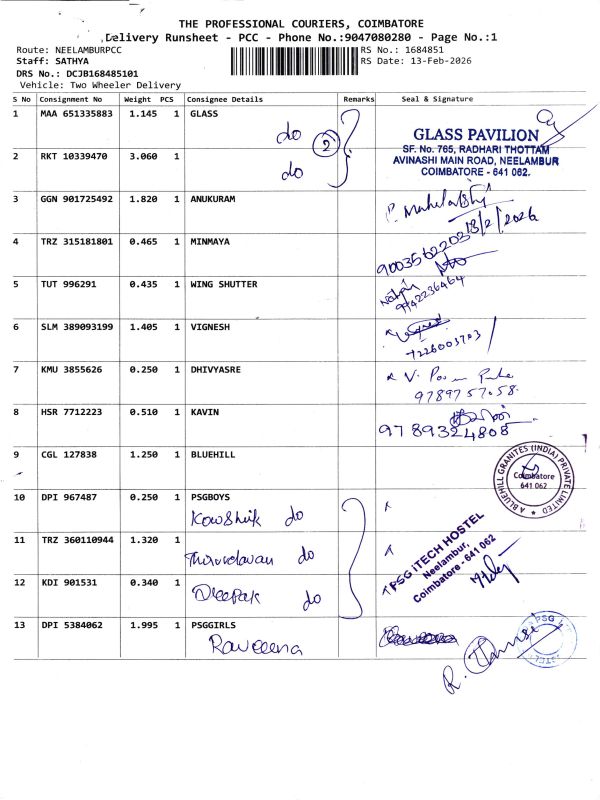 THE PROFESSIONAL COURIERS, COIMBATORE
Delivery Runsheet - PCC - Phone No.:9047080280 - Page No.:1
Route: NEELAMBURPCC RS No.: 1684851
Staff: SATHYA RS Date: 13-Feb-2026
DRS No.: DCJB168485101
Vehicle: Two Wheeler Delivery
S No Consignment No Weight PCS Consignee Details Remarks Seal & Signature
1 MAA 651335883 1.145 1 GLASS
do 2
GLASS PAVILION
SF. No. 765, RADHARI THOTTAM
AVINASHI MAIN ROAD, NEELAMBUR
COIMBATORE - 641 062.
2 RKT 10339470 3.060 1
do
3 GGN 901725492 1.820 1 ANUKURAM
P. 13/2/2026
4 TRZ 315181801 0.465 1 MINMAYA
9003562203
5 TUT 996291 0.435 1 WING SHUTTER
9942236464
6 SLM 389093199 1.405 1 VIGNESH
7226003703
7 KMU 3855626 0.250 1 DHIVYASRE
V.
9789757058
8 HSR 7712223 0.510 1 KAVIN
9789324808
9 CGL 127838 1.250 1 BLUEHILL
BLUEHILL GRANITES (INDIA) PRIVATE LIMITED
Coimbatore
641 062
10 DPI 967487 0.250 1 PSGBOYS
Kowshik do
11 TRZ 360110944 1.320 1
do
PSG iTECH HOSTEL
Neelambur,
Coimbatore - 641 062
12 KDI 901531 0.340 1
Deepak do
13 DPI 5384062 1.995 1 PSGGIRLS
Raveena
PSG
R.